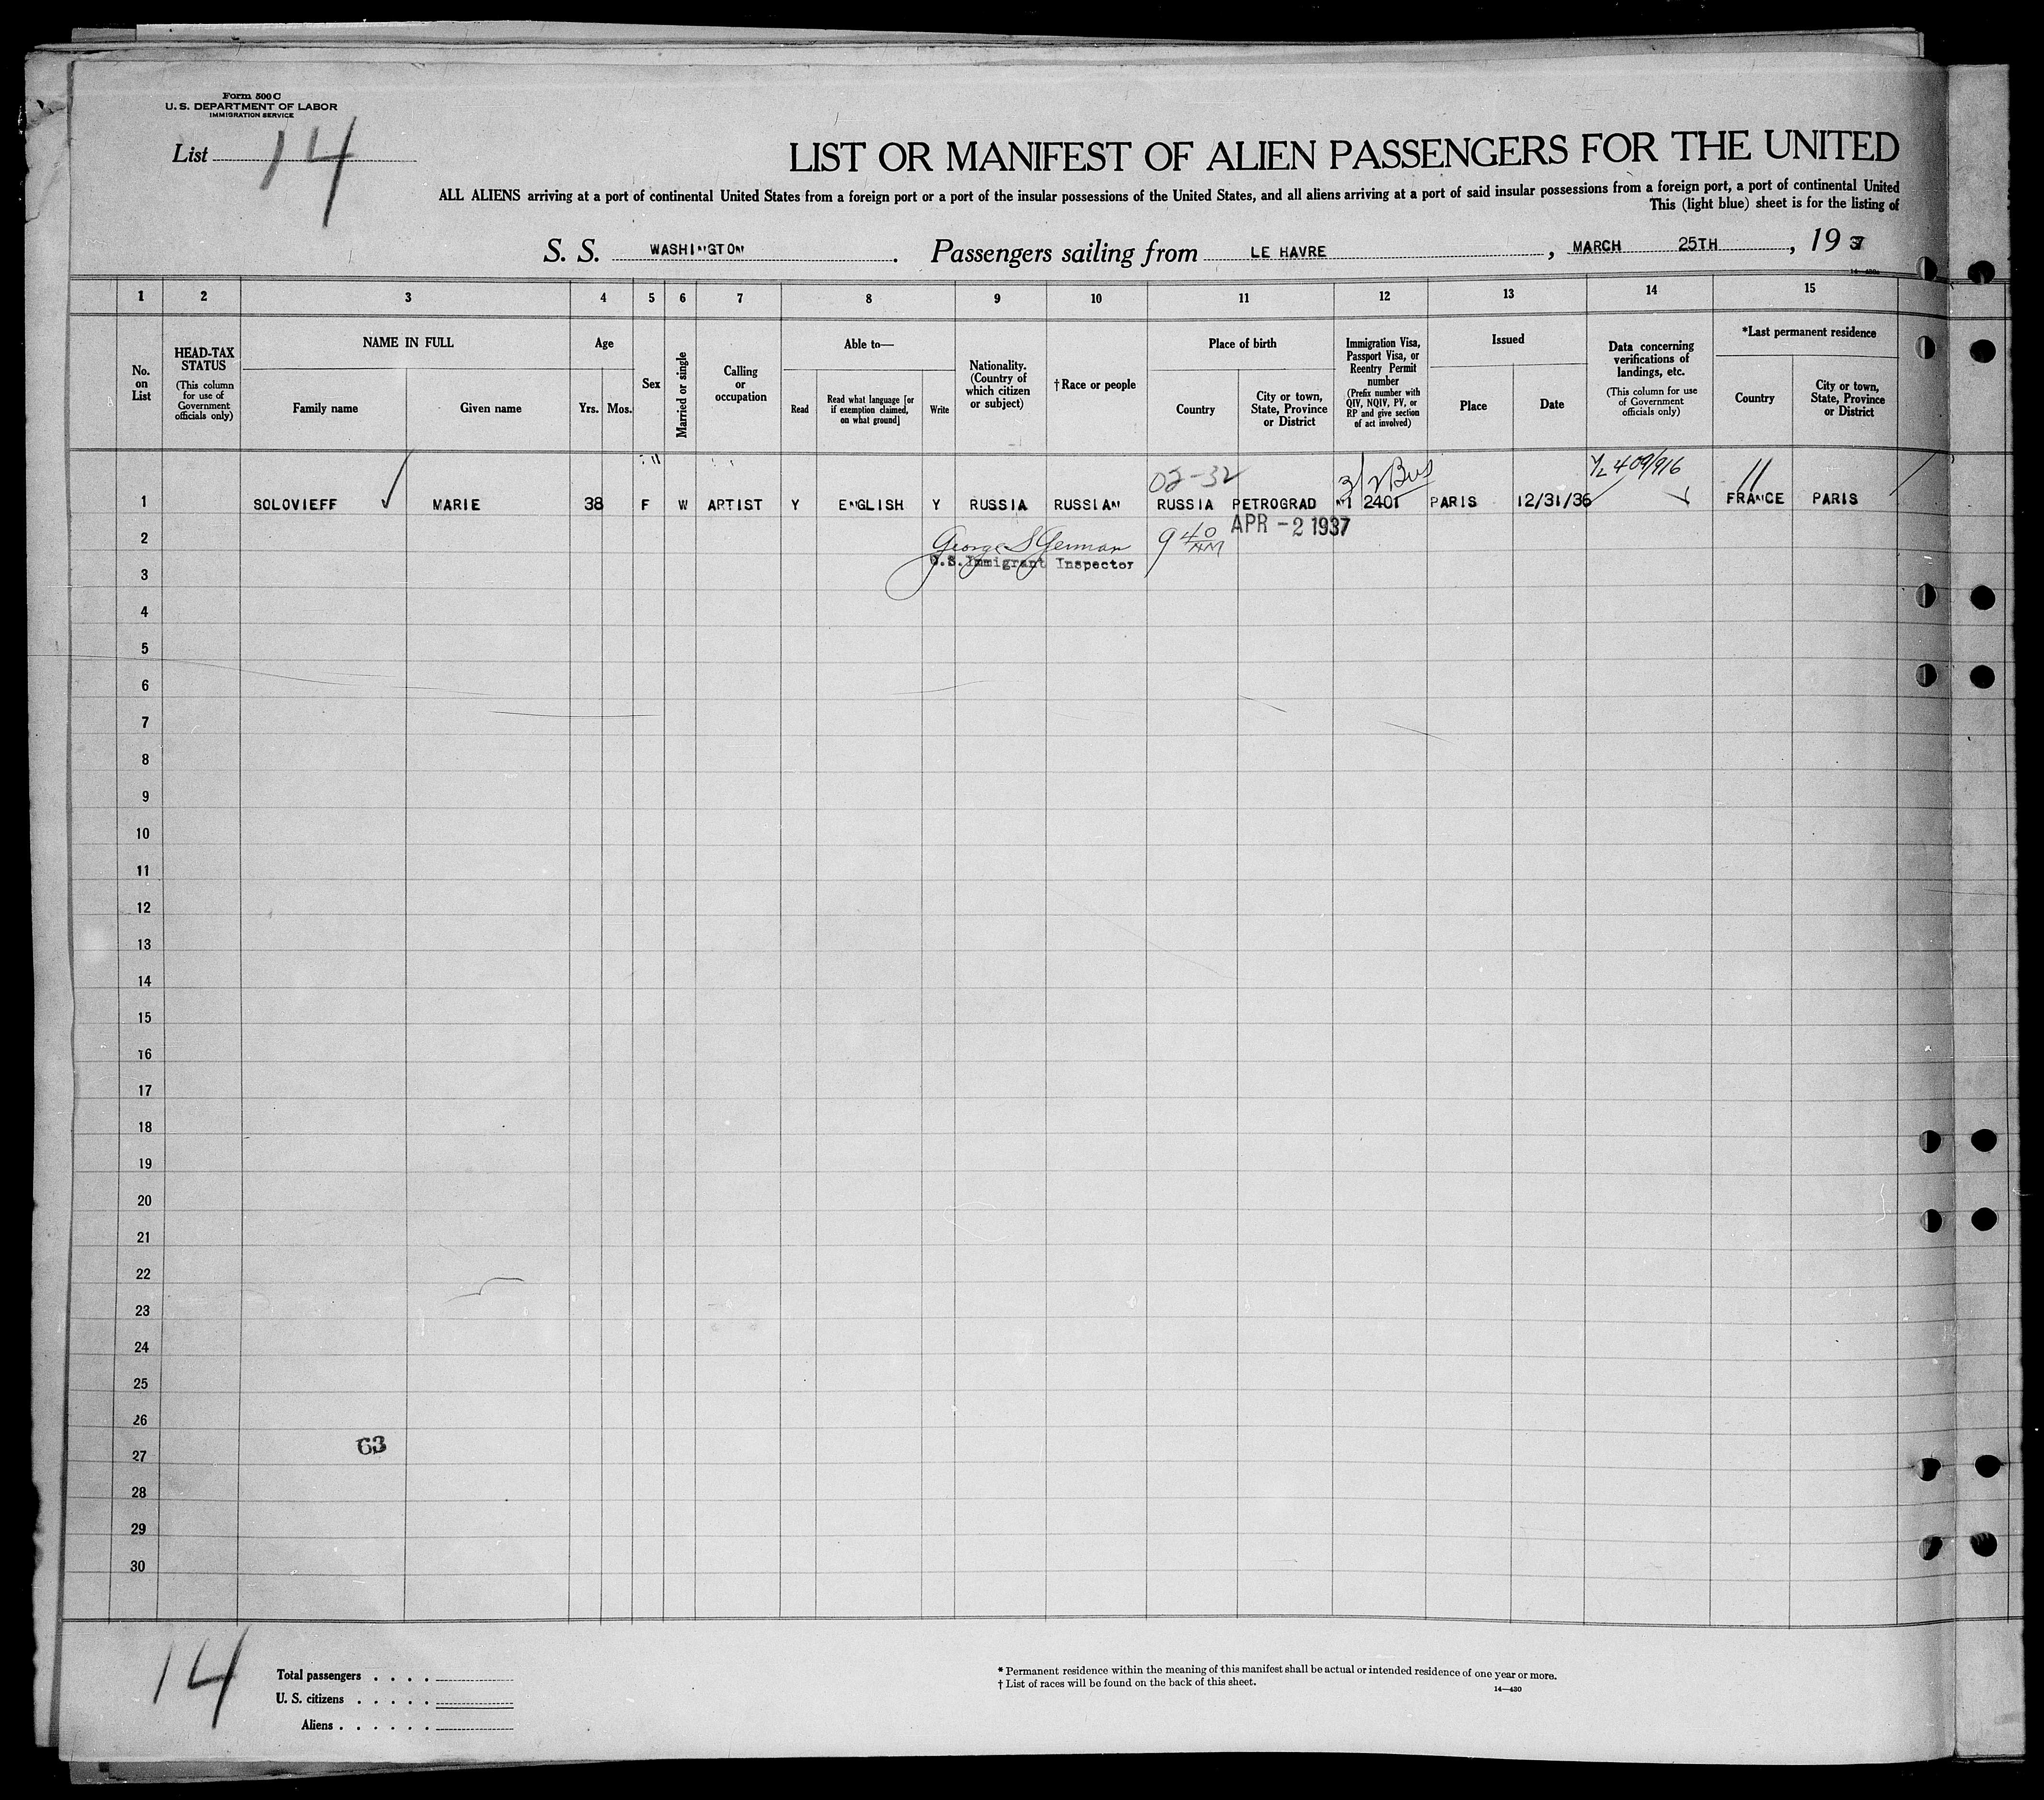 Form 500 C
U. S. DEPARTMENT OF LABOR
IMMIGRATION SERVICE
List 14
LIST OR MANIFEST OF ALIEN PASSENGERS FOR THE UNITED
ALL ALIENS arriving at a port of continental United States from a foreign port or a port of the insular possessions of the United States, and all aliens arriving at a port of said insular possessions from a foreign port, a port of continental United
This (light blue) sheet is for the listing of
S. S. WASHINGTON. Passengers sailing from LE HAVRE, MARCH 25TH, 1937
14—430
1 2 3 4 5 6 7 8 9 10 11 12 13 14 15
No. on List
HEAD-TAX STATUS (This column for use of Government officials only)
NAME IN FULL
Family name
Given name
Age
Yrs. Mos.
Sex
Married or single
Calling or occupation
Able to—
Read
Read what language [or if exemption claimed, on what ground]
Write
Nationality. (Country of which citizen or subject)
† Race or people
Place of birth
Country
City or town, State, Province or District
Immigration Visa, Passport Visa, or Reentry Permit number (Prefix number with QIV, NQIV, PV, or RP and give section of act involved)
Issued
Place
Date
Data concerning verifications of landings, etc. (This column for use of Government officials only)
*Last permanent residence
Country
City or town, State, Province or District
02-32 409/916
1 SOLOVIEFF MARIE 38 F W ARTIST Y ENGLISH Y RUSSIA RUSSIAN RUSSIA PETROGRAD 2401 PARIS 12/31/36 FRANCE PARIS
APR -2 1937
2 George S German 9 40 AM
U.S. Immigrant Inspector
3
4
5
6
7
8
9
10
11
12
13
14
15
16
17
18
19
20
21
22
23
24
25
26
63
27
28
29
30
14
Total passengers . . . .
U. S. citizens . . . . .
Aliens . . . . . .
* Permanent residence within the meaning of this manifest shall be actual or intended residence of one year or more.
† List of races will be found on the back of this sheet.
14—430